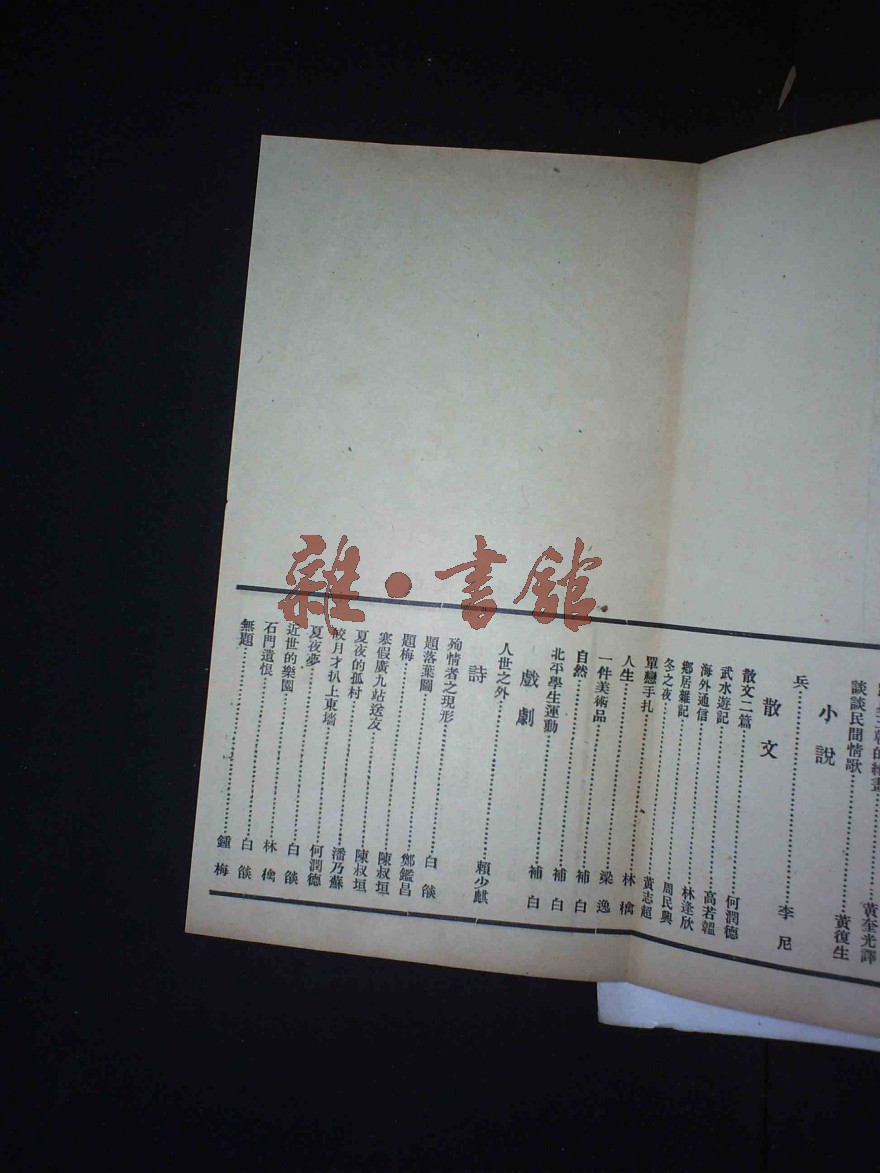 雜·書館
談談民間情歌……黃復生
小說
兵……李尼
散文
散文二篇……何潤德
武水遊記……高若韞
海外通信……林逢欣
鄉居雜記……周民興
冬之夜
單戀手扎……黃志超
人生……林檎
一件美術品……梁逸
自然……補白
北平學生運動……補白
戲劇
人世之外……賴少麒
詩
殉情者之現形
題落葉圖……白燄
題梅……鄭鑑昌
寒假廣九站送友……陳叔垣
夏夜的孤村……陳叔垣
皎月才扒上東墻……潘乃蘇
夏夜夢……何潤德
近世的樂園……白燄
石門遺恨……林檎
無題……鍾梅